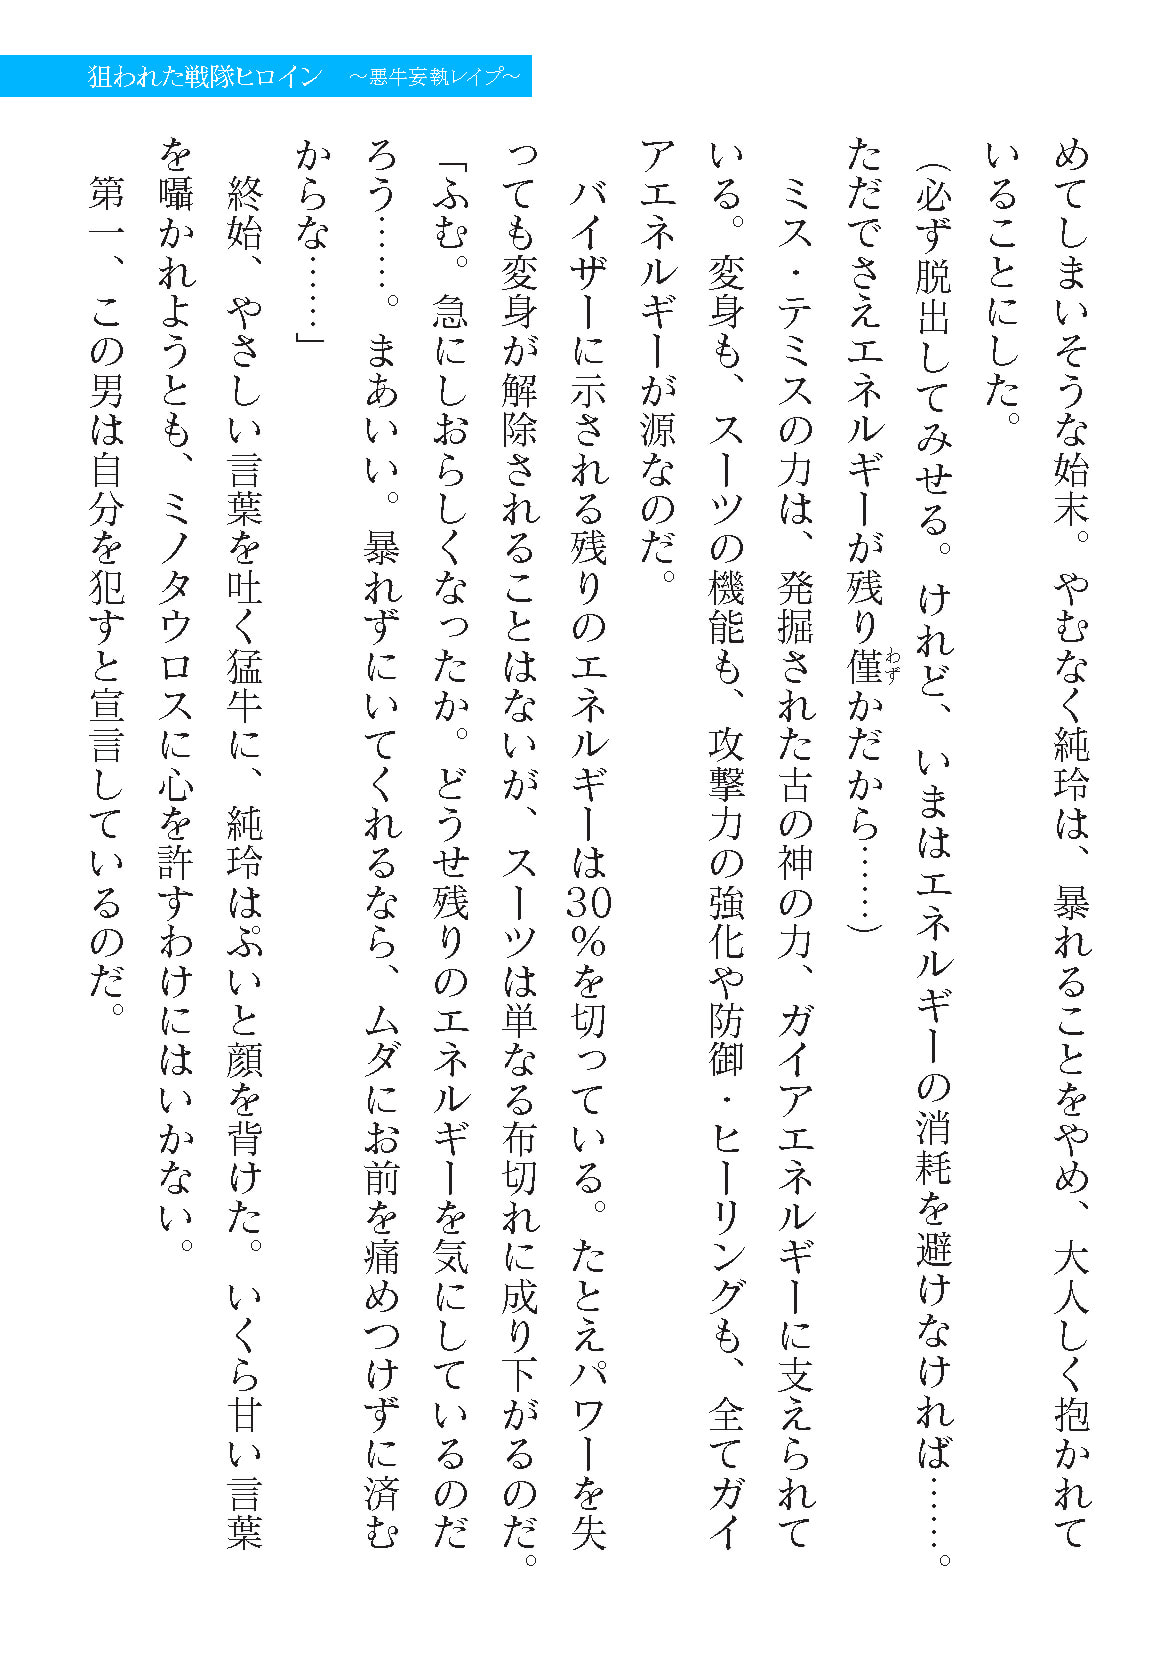 狙われた戦隊ヒロイン　～悪牛妄執レイプ～
めてしまいそうな始末。やむなく純玲は、暴れることをやめ、大人しく抱かれて
いることにした。
（必ず脱出してみせる。けれど、いまはエネルギーの消耗を避けなければ……。
ただでさえエネルギーが残り僅かだから……）
わず
　ミス・テミスの力は、発掘された古の神の力、ガイアエネルギーに支えられて
いる。変身も、スーツの機能も、攻撃力の強化や防御・ヒーリングも、全てガイ
アエネルギーが源なのだ。
　バイザーに示される残りのエネルギーは30％を切っている。たとえパワーを失
っても変身が解除されることはないが、スーツは単なる布切れに成り下がるのだ。
「ふむ。急にしおらしくなったか。どうせ残りのエネルギーを気にしているのだ
ろう……。まあいい。暴れずにいてくれるなら、ムダにお前を痛めつけずに済む
からな……」
　終始、やさしい言葉を吐く猛牛に、純玲はぷいと顔を背けた。いくら甘い言葉
を囁かれようとも、ミノタウロスに心を許すわけにはいかない。
　第一、この男は自分を犯すと宣言しているのだ。